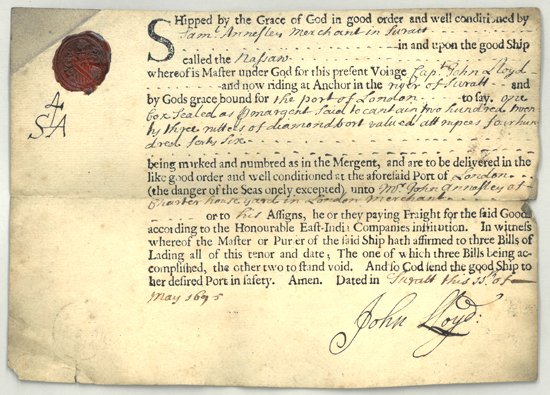 SHipped by the Grace of God in good order and well conditioned by
Sam: Annesley Merchant in Suratt
in and upon the good Ship
called the Nassaw
whereof is Master under God for this present Voiage Capt John Lloyd
and now riding at Anchor in the river of Suratt and
by Gods grace bound for the port of London to say, one
box sealed as Pmargent said to contain two hundred twen
ty three ruttees of diamond bort valued att rupees four hun
dred forty six
being marked and numbred as in the Mergent, and are to be delivered in the
like good order and well conditioned at the aforesaid Port of London
(the danger of the Seas onely excepted) unto Mr John Annesley at
Charter house yard in London Merchant
or to his Assigns, he or they paying Fraight for the said Goods
according to the Honourable East-India Companies institution. In witness
whereof the Master or Purser of the said Ship hath affirmed to three Bills of
Lading all of this tenor and date; The one of which three Bills being ac-
complished, the other two to stand void. And so God send the good Ship to
her desired Port in safety. Amen. Dated in Suratt this of
May 1695
John Lloyd:
4
SA